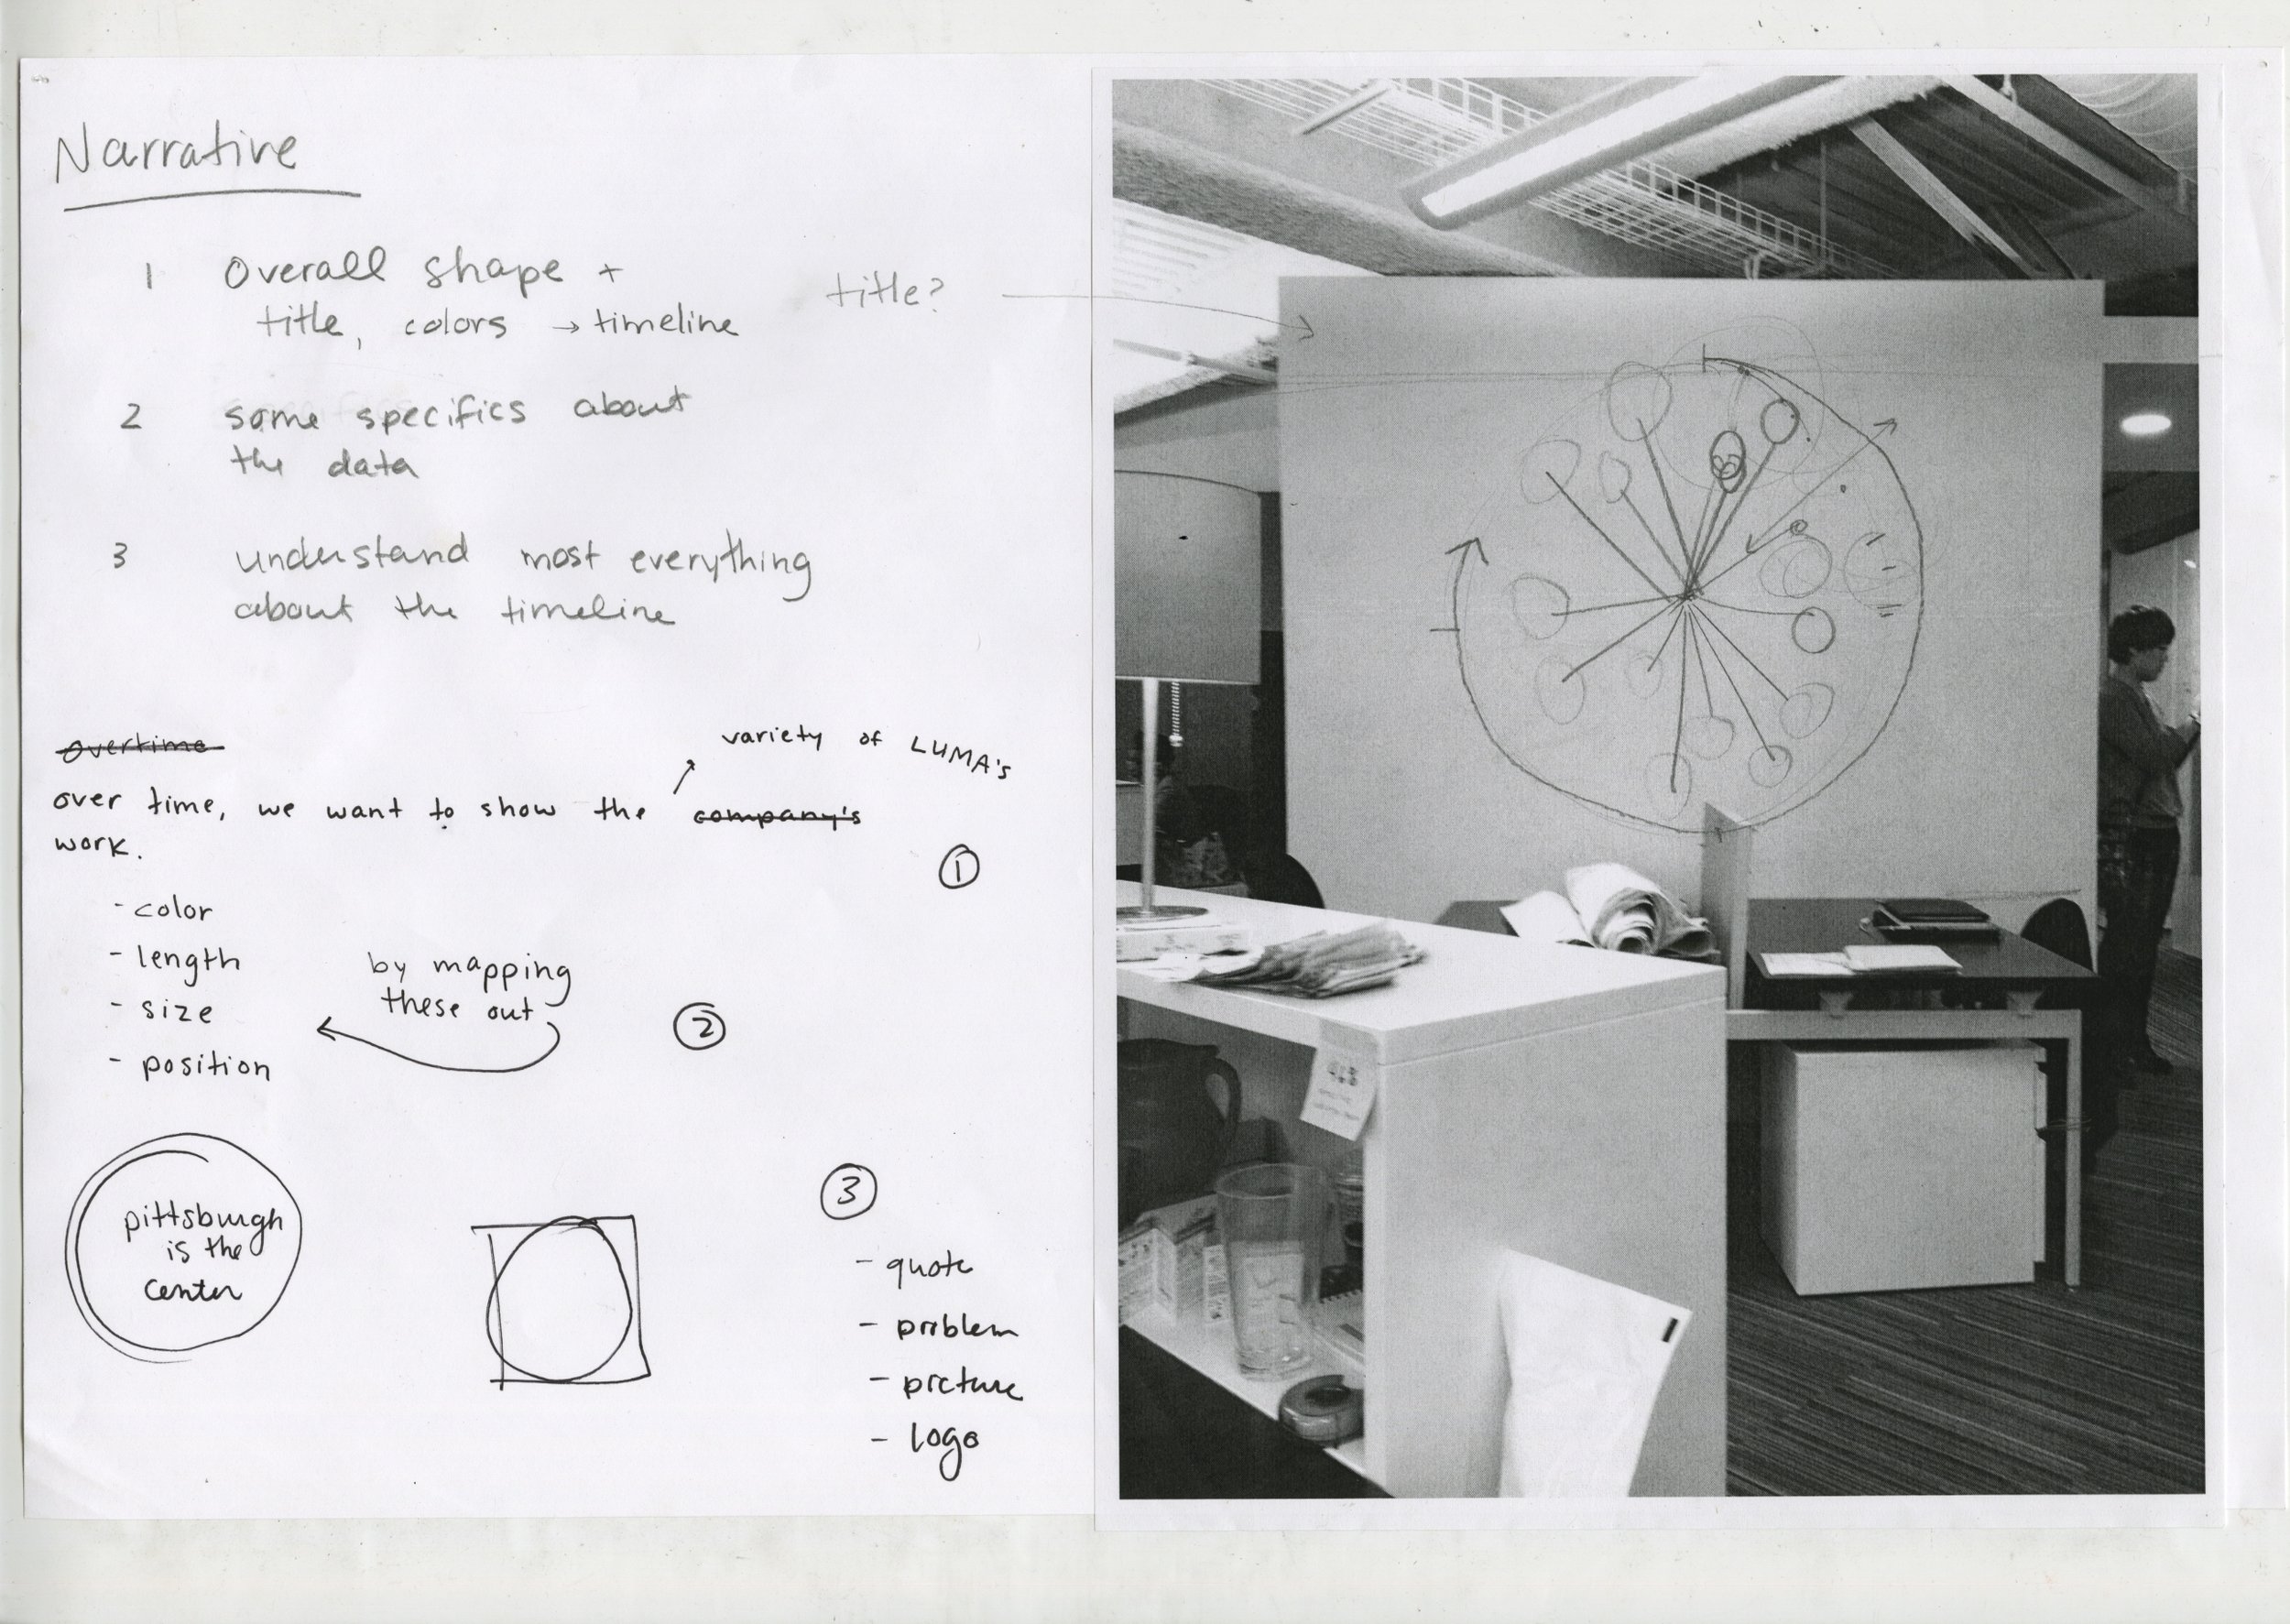 Narrative
1 Overall shape +
title, colors → timeline
title?
2 some specifics about
the data
3 understand most everything
about the timeline
overtime
variety of LUMA's
over time, we want to show the company's
work.
①
- color
- length
- size
- position
by mapping
these out
②
pittsburgh
is the
center
③
- quote
- problem
- picture
- logo